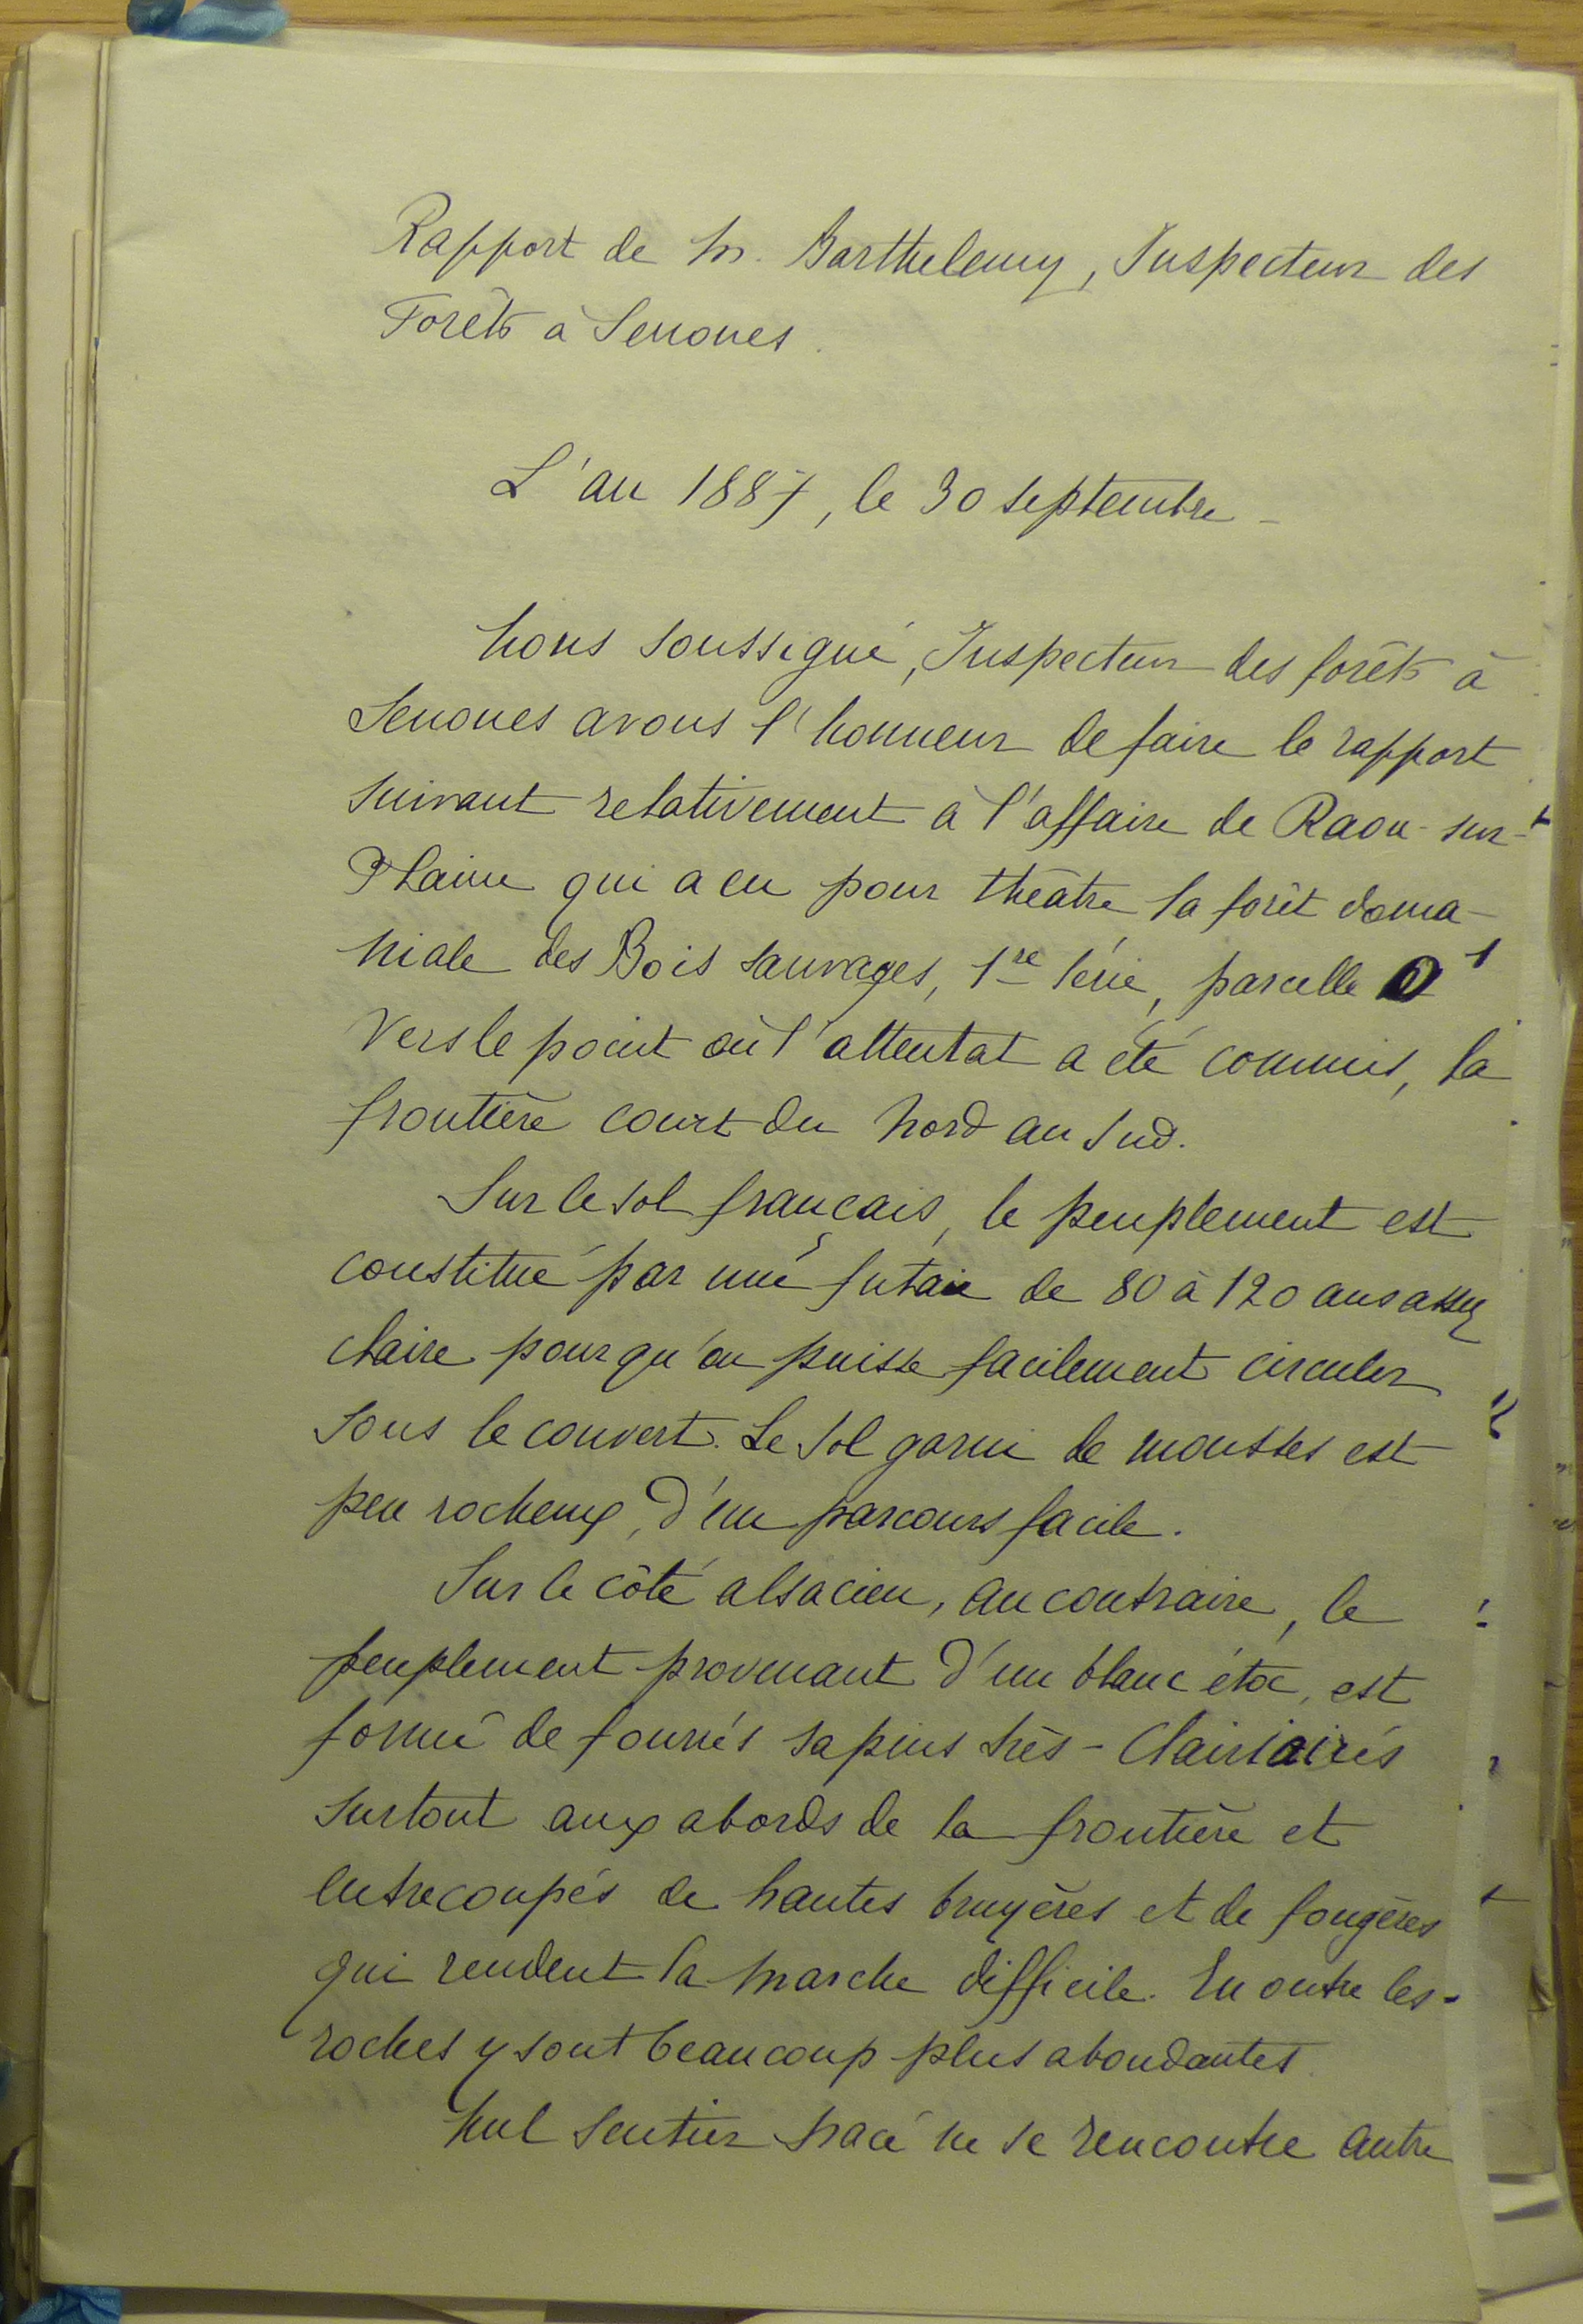 Rapport de M. Barthelemy, Inspecteur des
Forêts à Senones.
L'an 1887, le 30 septembre -
Nous soussigné, Inspecteur des forêts à
Senones avons l'honneur de faire le rapport
suivant relativement à l'affaire de Raon-sur-
Plaine qui a eu pour théâtre la forêt doma-
niale des Bois sauvages, 1re série, parcelle
Vers le point où l'attentat a été commis, la
frontière court du Nord au Sud.
Sur le sol français, le peuplement est
constitué par une futaie de 80 à 120 ans assez
claire pour qu'on puisse facilement circuler
sous le couvert. Le sol garni de mousses est
peu rocheux, d'un parcours facile.
Sur le côté alsacien, au contraire, le
peuplement provenant d'un blanc étoc, est
formé de fourrés sapins très-clairiairés
surtout aux abords de la frontière et
entrecoupés de hautes bruyères et de fougères
qui rendent la marche difficile. En outre les-
roches y sont beaucoup plus abondantes.
Nul sentier tracé ne se rencontre autre